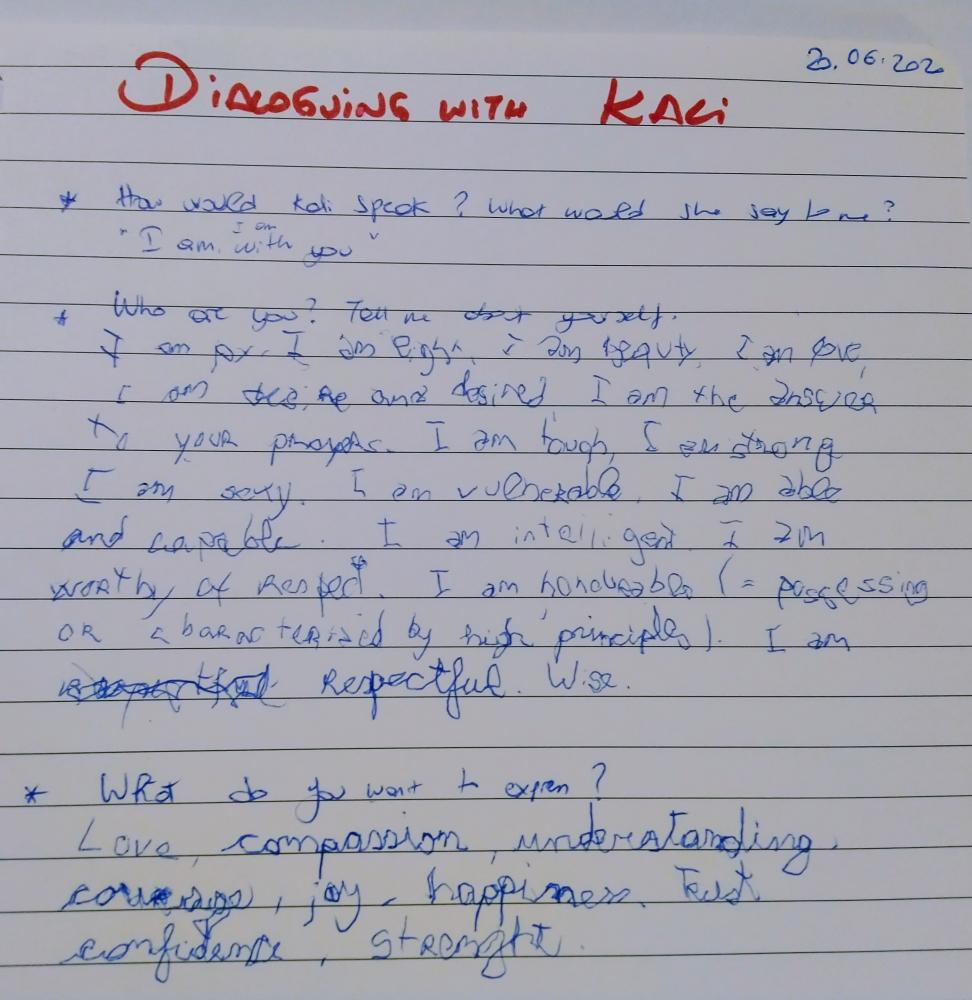 20.06.2020
DIALOGUING WITH KALI
* How would Kali speak? What would she say to me?
I am
"I am with you"
* Who are you? Tell me about yourself.
I am joy. I am light, I am beauty, I am love,
I am desire and desired. I am the answer
to your prayers. I am tough, I am strong
I am sexy. I am vulnerable. I am able
and capable. I am intelligent. I am
worthy of respect. I am honourable (= possessing
or characterised by high principles). I am
Respectful. Wise.
* What do you want to express?
Love, compassion, understanding,
courage, joy, happiness. Trust
confidence, strenght.